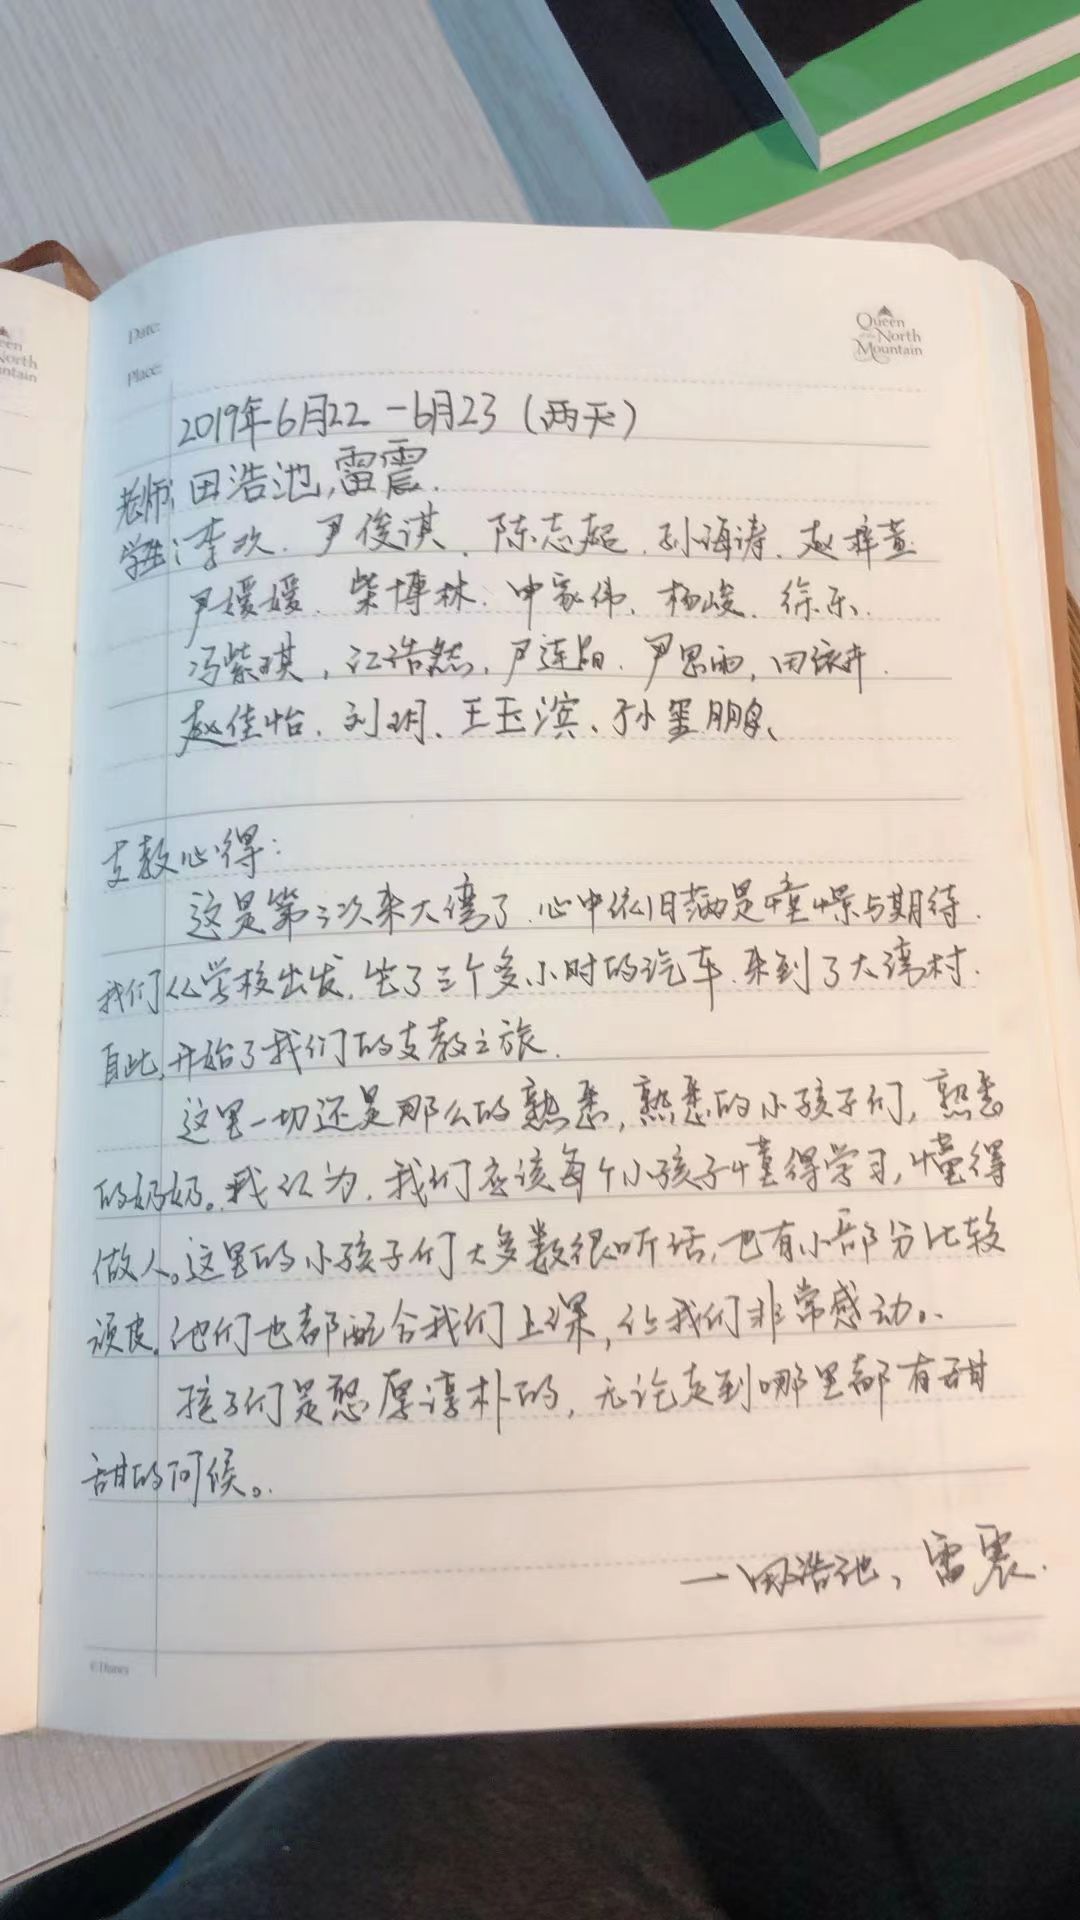 Date:
Place:
Queen
of the North
Mountain
een
North
untain
2019年6月22-6月23（两天）
老师：田浩池，雷震.
学生：李欢、尹俊淇、陈志超、孙海涛、赵梓萱
尹媛媛、柴博林、申家伟、杨峻、徐乐、
冯紫琪，江浩然，尹连阳、尹思雨，田
赵佳怡、刘玥、王玉滨、孙玺鹏、
支教心得：
这是第三次来大湾了，心中依旧满是憧憬与期待.
我们从学校出发，坐了三个多小时的汽车，来到了大湾村.
自此，开始了我们的支教之旅.
这里一切还是那么的熟悉，熟悉的小孩子们，熟悉
的奶奶。我认为，我们应该每个小孩子懂得学习，懂得
做人。这里的小孩子们大多数很听话，也有小部分比较
顽皮，他们也都配合我们上课，让我们非常感动。
孩子们是憨厚淳朴的，无论走到哪里都有甜
甜的问候。
—田浩池，雷震.
©Disney